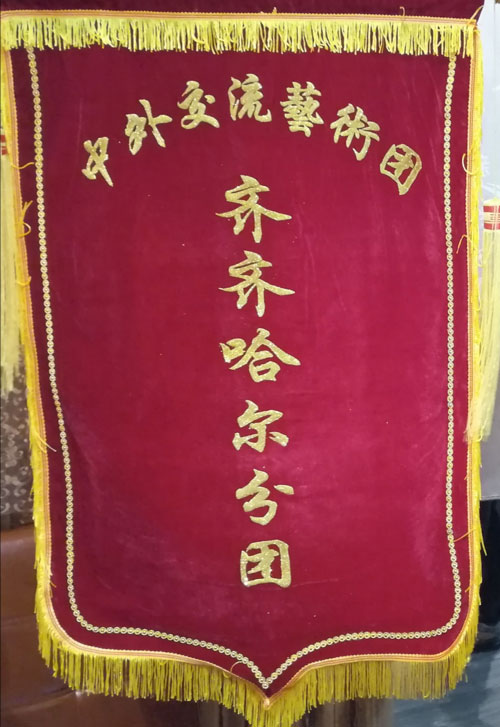 中外交流藝術团
齐齐哈尔分团